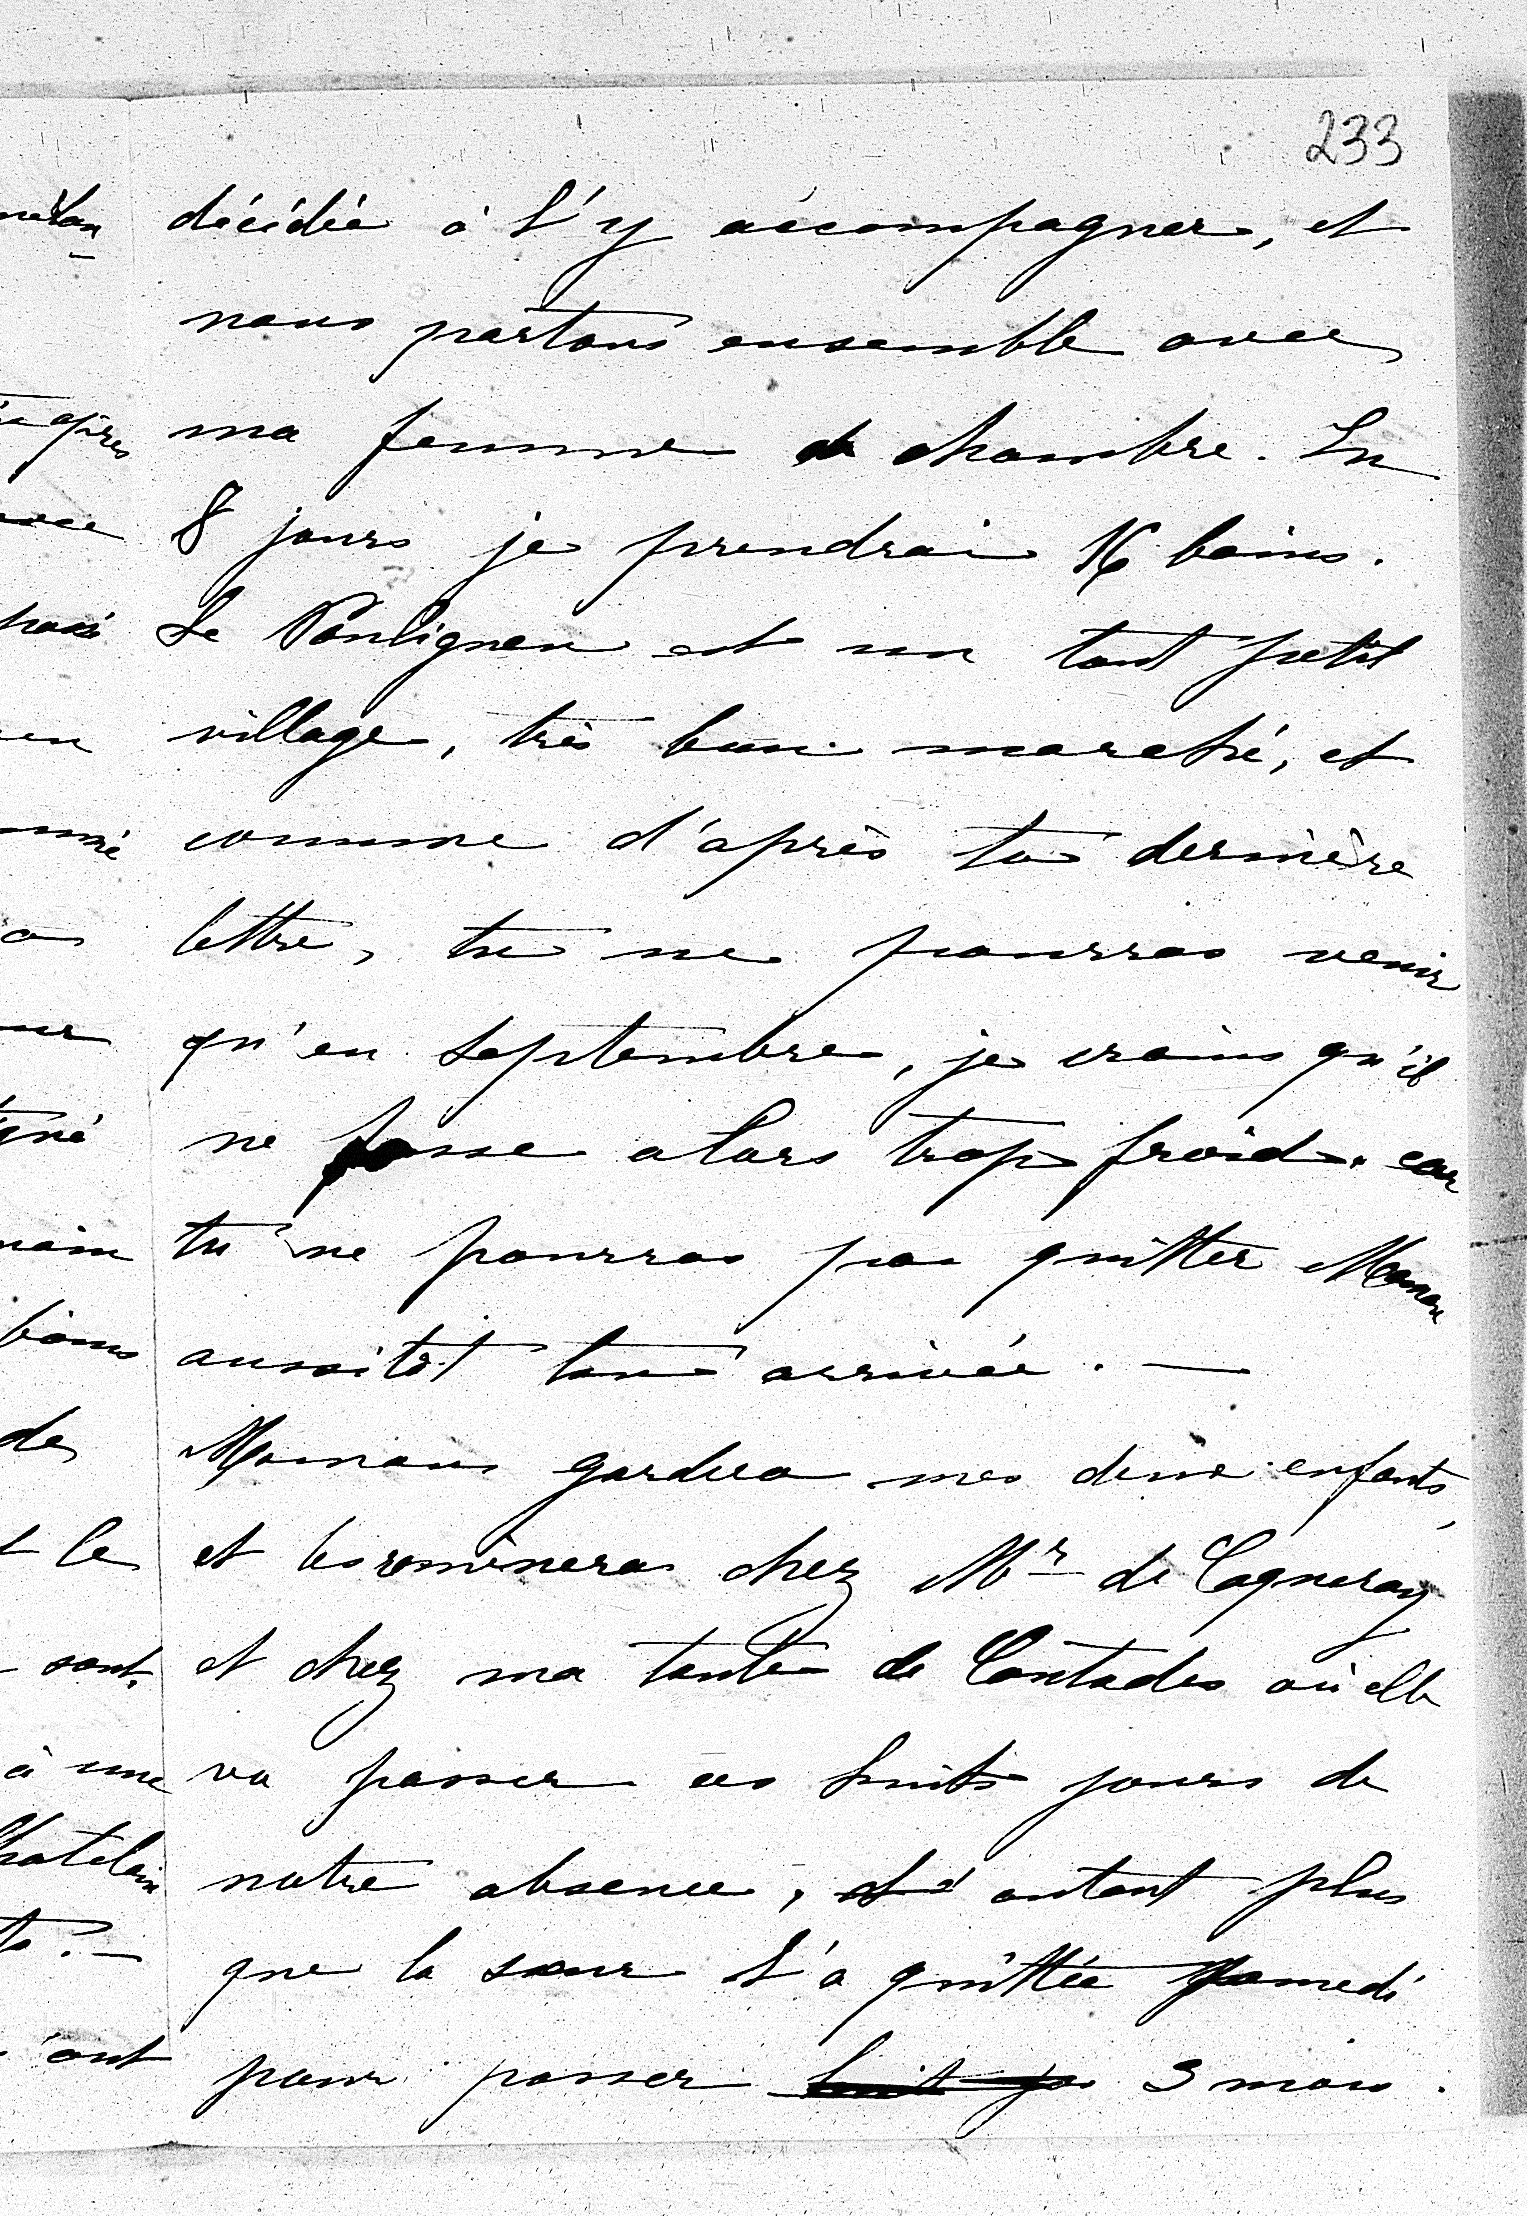 233
décidée à l'y accompagner, et
nous partons ensemble avec
ma femme de chambre. En
8 jours je prendrai 16 bains.
Le Pouliguen est un tout petit
village, très bon marché, et
comme d'après ta dernière
lettre, tu ne pourras venir
qu'en septembre, je crains qu'il
ne fasse alors trop froid. car
tu ne pourras pas quitter Maman
aussitôt ton arrivée. —
Maman gardera mes deux enfants,
et les emmènera chez Mr de Cagneray
et chez ma tante de Contades où elle
va passer ces huits jours de
notre absence, d'autant plus
que la sœur l'a quittée samedi
pour passer huit jrs 3 mois.